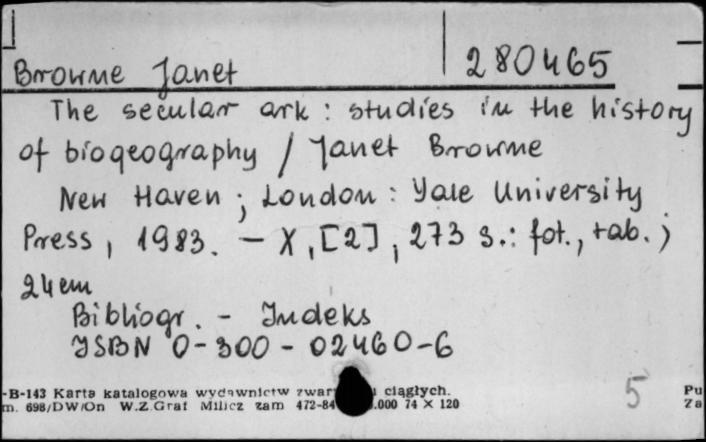 Browne Janet 280465
The secular ark : studies in the history
of biogeography / Janet Browne
New Haven ; London : Yale University
Press, 1983. - X, [2], 273 s. : fot., tab. ;
24 cm
Bibliogr. - Indeks
ISBN 0-300-02460-6
-B-143 Karta katalogowa wydawnictw ciągłych. 5 Pu
m. 698/DW/On W.Z.Graf Milicz zam 472-84 .000 74 × 120 Za